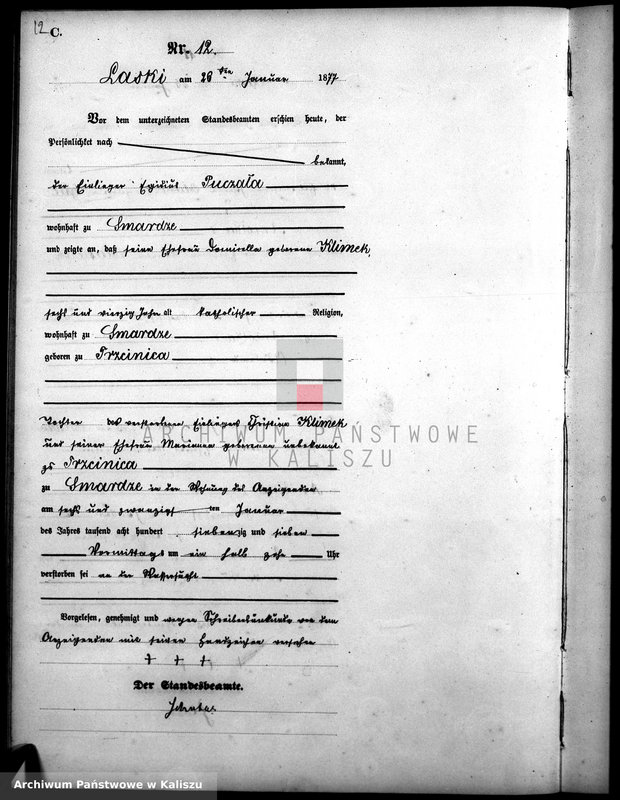 12 C.
Nr. 12.
Laski am 26 ten Januar 1877
Vor dem unterzeichneten Standesbeamten erschien heute, der
Persönlichkeit nach
bekannt,
der Einlieger Egidius Puczała
wohnhaft zu Smardze
und zeigte an, daß seine Ehefrau geborene Klimek,
sechs und vierzig Jahr alt katholischer Religion,
wohnhaft zu Smardze
geboren zu Trzcinica
Tochter des verstorbenen Einliegers Klimek
und seiner Ehefrau Marianna geborene unbekannt
zu Trzcinica
zu Smardze in der Wohnung des Anzeigenden
am sechs und zwanzigsten Januar
des Jahres tausend acht hundert siebenzig und sieben
Vormittags um ein halb zehn Uhr
verstorben sei an der Wassersucht
Vorgelesen, genehmigt und wegen Schreibensunkunde von dem
Anzeigenden mit seinen Handzeichen versehen
+ + +
Der Standesbeamte.
ARCHIWUM PAŃSTWOWE
W KALISZU
Archiwum Państwowe w Kaliszu